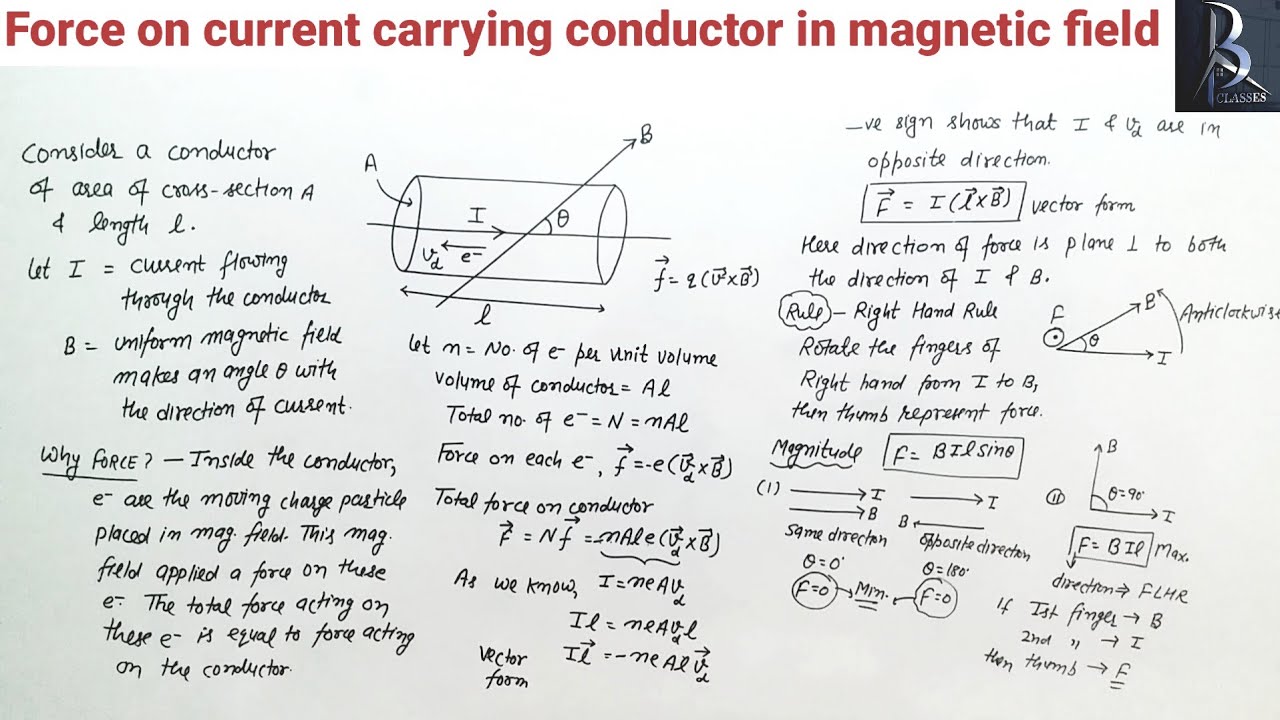 Force on current carrying conductor in magnetic field
B
CLASSES
Consider a conductor
of area of cross-section A
& length l.
Let I = current flowing
through the conductor
B = uniform magnetic field
makes an angle θ with
the direction of current.
Why FORCE? — Inside the conductor,
e⁻ are the moving charge particle
placed in mag. field. This mag.
field applied a force on these
e⁻. The total force acting on
these e⁻ is equal to force acting
on the conductor.
A
B
I
θ
v_d
e⁻
l
f⃗ = q(v⃗×B⃗)
let n = No. of e⁻ per unit volume
volume of conductor = Al
Total no. of e⁻ = N = nAl
Force on each e⁻, f⃗ = -e(v⃗_d×B⃗)
Total force on conductor
F⃗ = Nf⃗ = -nAle(v⃗_d×B⃗)
As we know, I = neAv_d
Il = neAv_d l
vector form
Il⃗ = -neAl v⃗_d
-ve sign shows that I & v_d are in
opposite direction.
F⃗ = I(l⃗×B⃗) vector form
Here direction of force is plane ⊥ to both
the direction of I & B.
Rule – Right Hand Rule
Rotate the fingers of
Right hand from I to B,
then thumb represent force.
F
B
θ
I
Anticlockwise
Magnitude F = BIl sinθ
(1) I
B
same direction
θ=0°
F=0
Min.
I
B
opposite direction
θ=180°
F=0
(ii) B
θ=90°
I
F = BIl Max.
direction → FLHR
If Ist finger → B
2nd " → I
then thumb → F